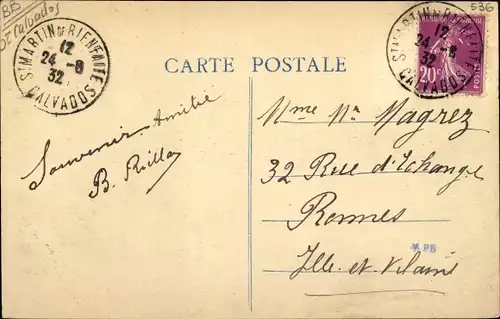 BB
Calvados
536
ST MARTIN DE BIENFAITE
12
24 - 8
32
CALVADOS
ST MARTIN DE BIENFAITE
12
24 - 8
32
CALVADOS
20c
POSTES
CARTE POSTALE
Souvenir Amitié
B. Rilla
Mme Vr Magrez
32 Rue d'Echange
Rennes
Ille et Vilaine